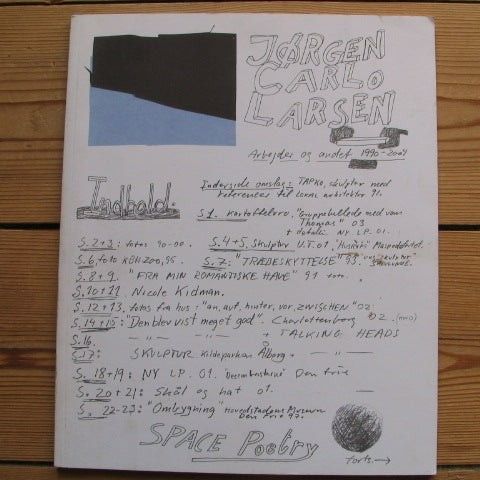 JØRGEN
CARLO
LARSEN
Arbejder og andet 1990-2004
Indhold:
Inderside omslag: TAPKO, skulptur med
referencer til LOKAL arkitektur 91.
S 1. Kartoffelbro. "Gruppebillede med vans
Thomas" 03
+ detalje NY LP. 01.
S. 2+3: fotos 90-00.
S. 4+5. Skulptur U.T. 01,
S. 6, foto KØH 200, 95.
S. 7: "TRÆDESKYTTELSE" 93.
S. 8+9. "FRA MIN ROMANTISKE HAVE" 91 foto.
S. 10+11. Nicole Kidman.
S. 12+13. fotos fra hus: "an, auf, hinter, vor, ZWISCHEN" 02.
S. 14+15: "Den blev vist meget god". Charlottenborg 02.
S. 16. — " — — " — + TALKING HEADS
S. 17: SKULPTUR Kildeparken Ålborg + — " —
S. 18+19: NY LP. 01. Den frie
S. 20+21: Skål og hat 01.
S. 22-23: "Ombygning" Hovedstadens Museum
Den Frie 97.
SPACE Poetry
forts. →